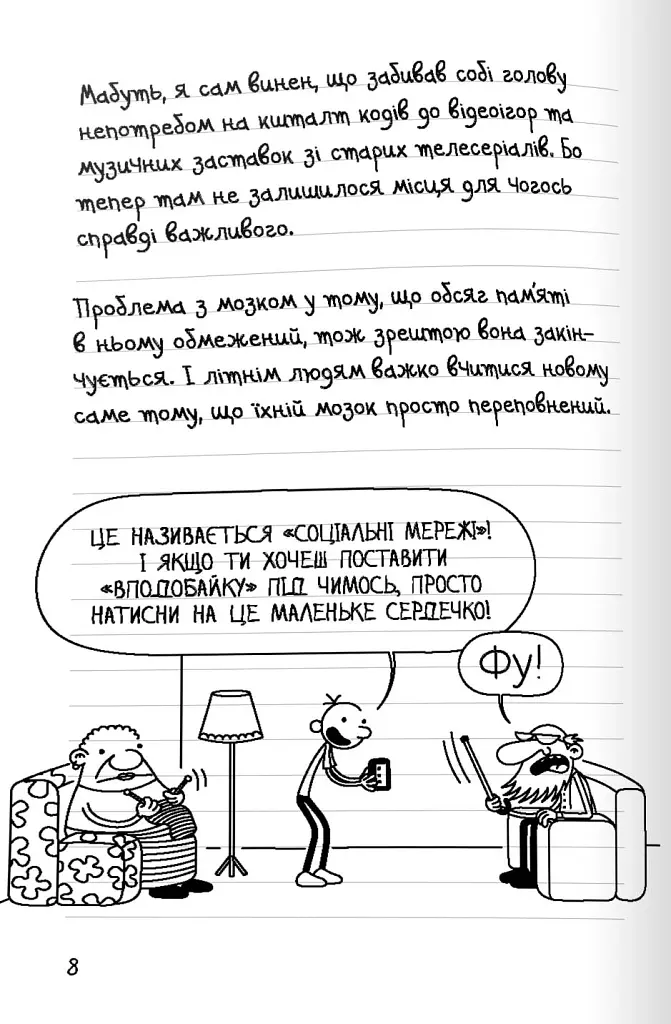 Мабуть, я сам винен, що забивав собі голову
непотребом на кшталт кодів до відеоігор та
музичних заставок зі старих телесеріалів. Бо
тепер там не залишилося місця для чогось
справді важливого.
Проблема з мозком у тому, що обсяг пам'яті
в ньому обмежений, тож зрештою вона закін-
чується. І літнім людям важко вчитися новому
саме тому, що їхній мозок просто переповнений.
ЦЕ НАЗИВАЄТЬСЯ «СОЦІАЛЬНІ МЕРЕЖІ»!
І ЯКЩО ТИ ХОЧЕШ ПОСТАВИТИ
«ВПОДОБАЙКУ» ПІД ЧИМОСЬ, ПРОСТО
НАТИСНИ НА ЦЕ МАЛЕНЬКЕ СЕРДЕЧКО!
ФУ!
8